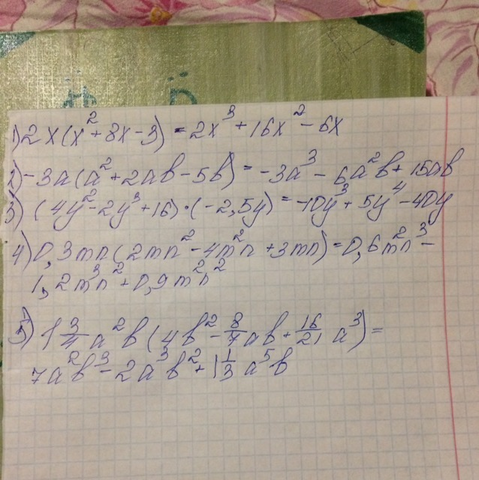 1) 2x(x²+8x-3) = 2x³+16x²-6x
2) -3a(a²+2ab-5b) = -3a³-6a²b+15ab
3) (4y²-2y³+16)·(-2,5y) = -10y³+5y⁴-40y
4) 0,3mn(2mn²-4m²n+3mn) = 0,6m²n³-
1,2m³n²+0,9m²n²
5) 1 3/4 a²b(4b²-8/7ab+16/21 a³) =
7a²b³-2a³b²+1 1/3 a⁵b